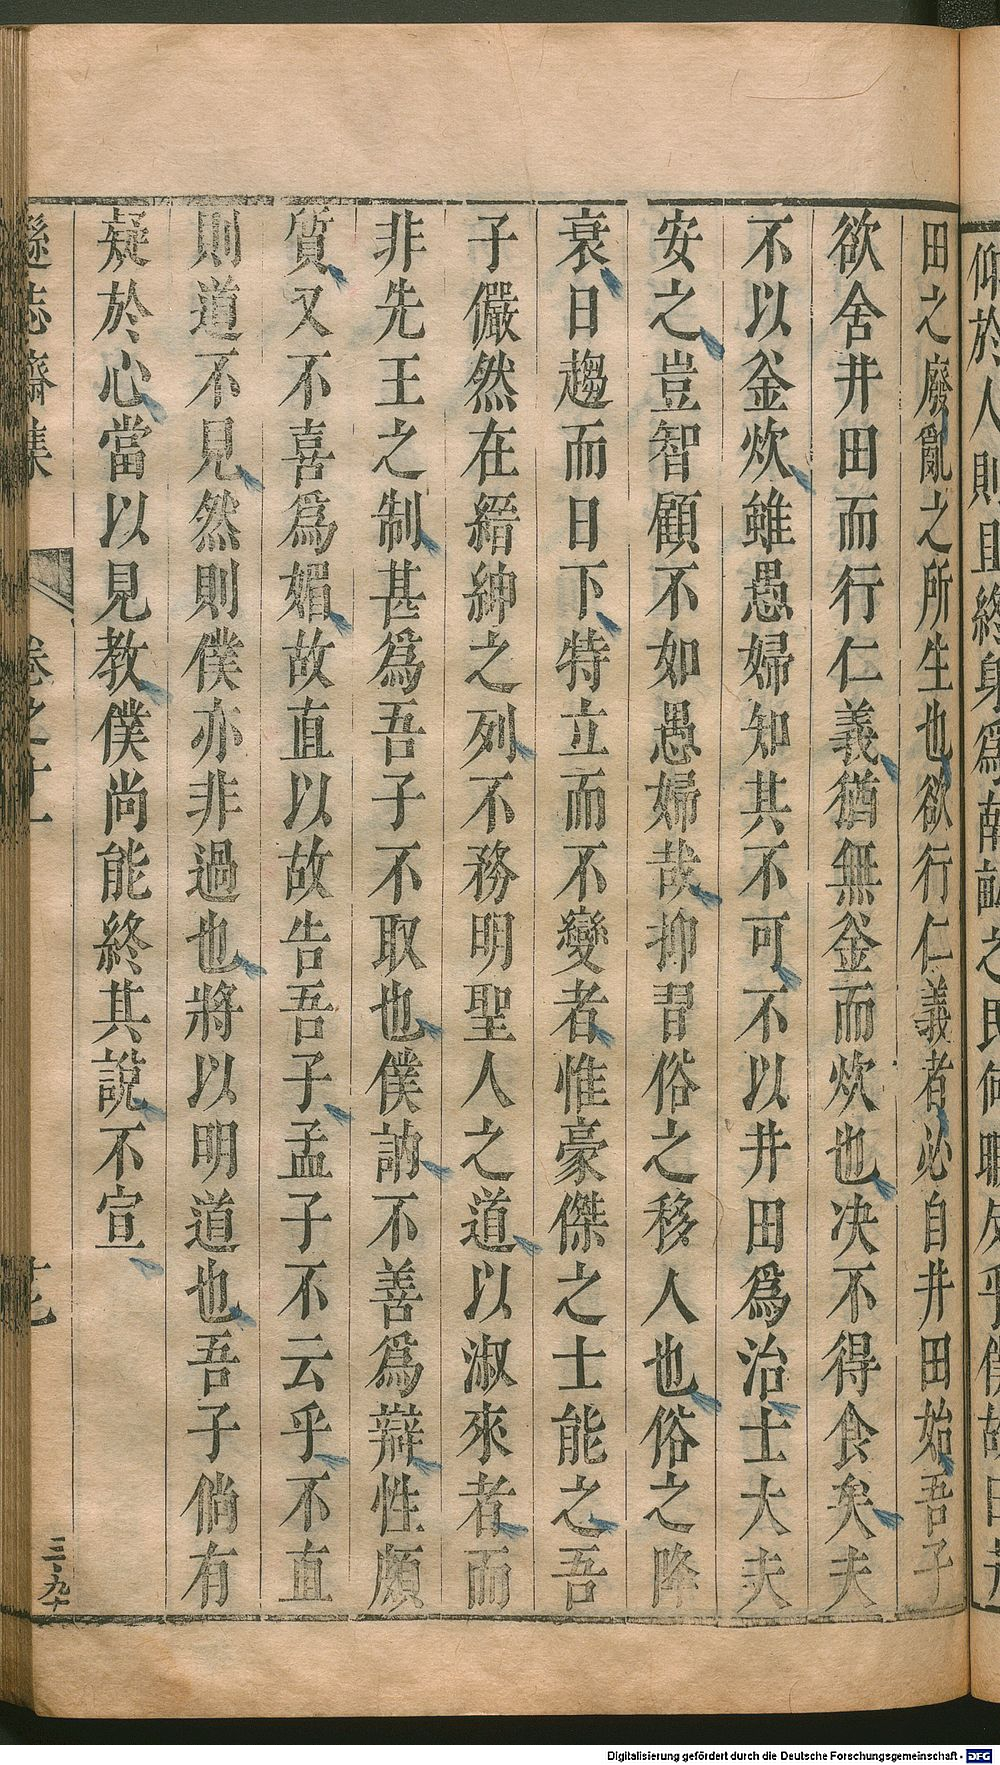 仰於人則且終身為南畝之民何職
田之廢亂之所生也欲行仁義者必自井田始吾子
欲舍井田而行仁義猶無釜而炊也决不得食矣夫
不以釜炊雖愚婦知其不可不以井田爲治士大夫
安之豈智顧不如愚婦哉抑習俗之移人也俗之降
衰日趨而日下特立而不變者惟豪傑之士能之吾
子儼然在縉紳之列不務明聖人之道以淑來者而
非先王之制甚爲吾子不取也僕訥不善爲辯性頗
質又不喜爲媚故直以故告吾子孟子不云乎不直
則道不見然則僕亦非過也將以明道也吾子倘有
疑於心當以見教僕尚能終其說不宣
遜志齋集 卷之十一
三九
Digitalisierung gefördert durch die Deutsche Forschungsgemeinschaft - DFG